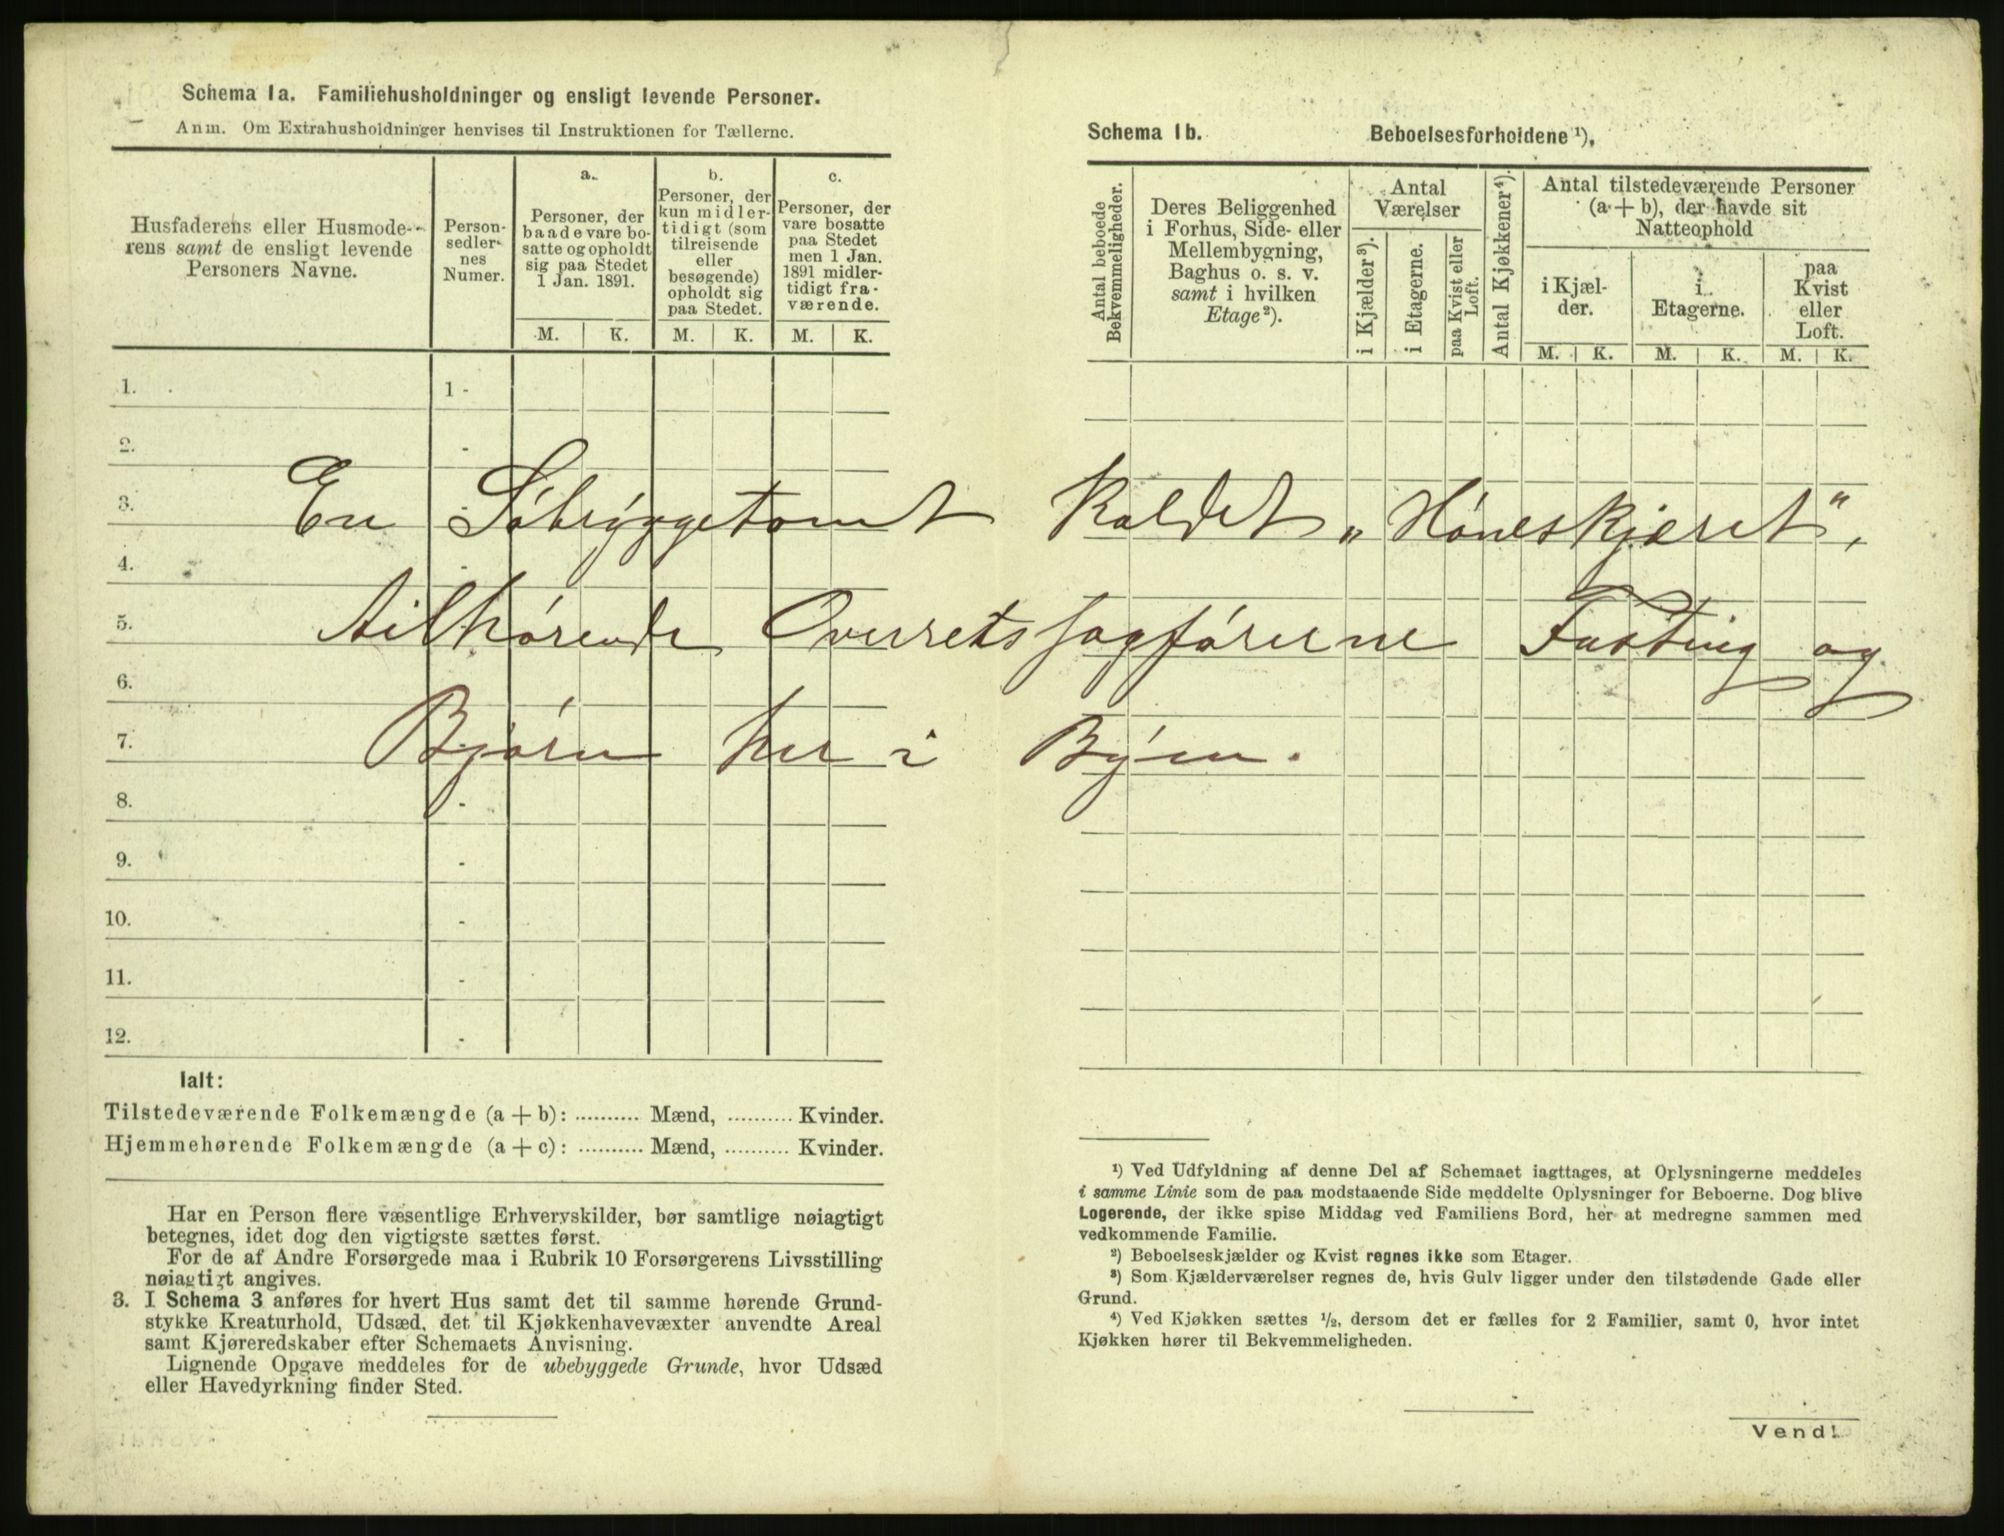 Schema 1a. Familiehusholdninger og ensligt levende Personer.
Anm. Om Extrahusholdninger henvises til Instruktionen for Tællerne.
Husfaderens eller Husmode-
rens samt de ensligt levende
Personers Navne.
Person-
sedler-
nes
Numer.
a.
Personer, der
baade vare bo-
satte og opholdt
sig paa Stedet
1 Jan. 1891.
b.
Personer, der
kun midler-
tidigt (som
tilreisende
eller
besøgende)
opholdt sig
paa Stedet.
c.
Personer, der
vare bosatte
paa Stedet
men 1 Jan.
1891 midler-
tidigt fra-
værende.
M. K. M. K. M. K.
1. 1 -
2. -
3. -
4.
5.
6.
7.
8. -
9. -
10. -
11. -
12. -
Ialt:
Tilstedeværende Folkemængde (a + b): .......... Mænd, .......... Kvinder.
Hjemmehørende Folkemængde (a + c): .......... Mænd, .......... Kvinder.
Har en Person flere væsentlige Erhvervskilder, bør samtlige nøiagtigt
betegnes, idet dog den vigtigste sættes først.
For de af Andre Forsørgede maa i Rubrik 10 Forsørgerens Livsstilling
nøiagtigt angives.
3. I Schema 3 anføres for hvert Hus samt det til samme hørende Grund-
stykke Kreaturhold, Udsæd, det til Kjøkkenhavevæxter anvendte Areal
samt Kjøreredskaber efter Schemaets Anvisning.
Lignende Opgave meddeles for de ubebyggede Grunde, hvor Udsæd
eller Havedyrkning finder Sted.
Schema 1b. Beboelsesforholdene ¹).
Antal beboede
Bekvemmeligheder.
Deres Beliggenhed
i Forhus, Side- eller
Mellembygning,
Baghus o. s. v.
samt i hvilken
Etage²).
Antal
Værelser
i Kjælder³).
i Etagerne.
paa Kvist eller
Loft.
Antal Kjøkkener⁴).
Antal tilstedeværende Personer
(a + b), der havde sit
Natteophold
i Kjæl-
der.
i
Etagerne.
paa
Kvist
eller
Loft.
M. K. M. K. M. K.
En Söbryggetomt kaldet „Höneskjæret",
tilhörende Overretssagförerne Fasting og
Björn her i Byen.
¹) Ved Udfyldning af denne Del af Schemaet iagttages, at Oplysningerne meddeles
i samme Linie som de paa modstaaende Side meddelte Oplysninger for Beboerne. Dog blive
Logerende, der ikke spise Middag ved Familiens Bord, her at medregne sammen med
vedkommende Familie.
²) Beboelseskjælder og Kvist regnes ikke som Etager.
³) Som Kjælderværelser regnes de, hvis Gulv ligger under den tilstødende Gade eller
Grund.
⁴) Ved Kjøkken sættes ½, dersom det er fælles for 2 Familier, samt 0, hvor intet
Kjøkken hører til Bekvemmeligheden.
Vend!